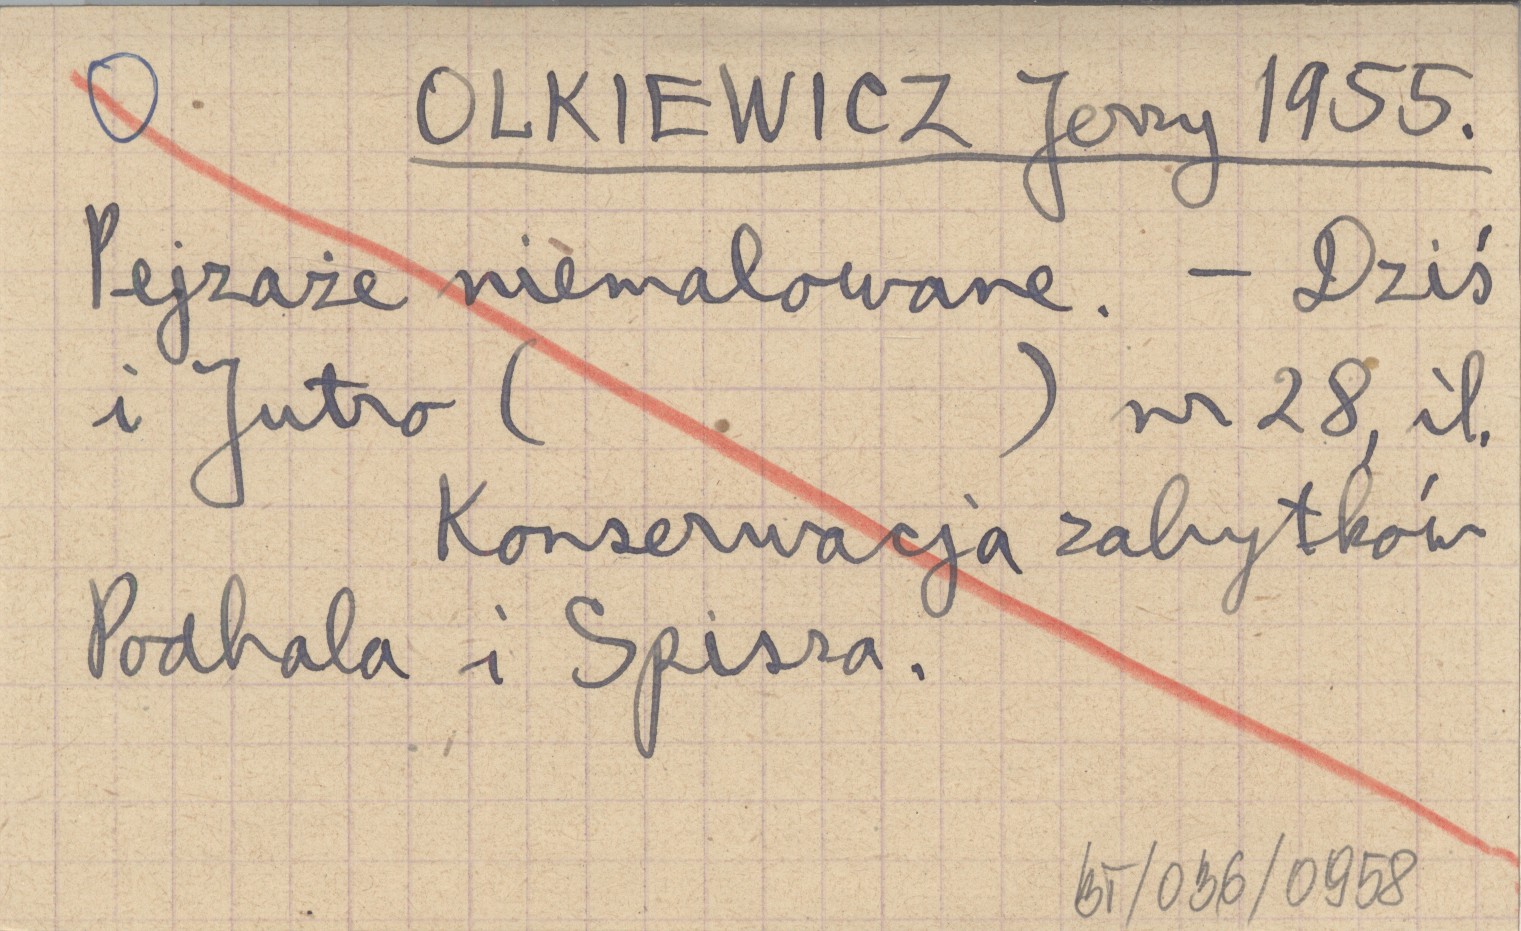 OLKIEWICZ Jerzy 1955.
Pejzaże niemalowane. – Dziś
i Jutro ( ) nr 28, il.
Konserwacja zabytków
Podhala i Spisza.
BT/036/0958